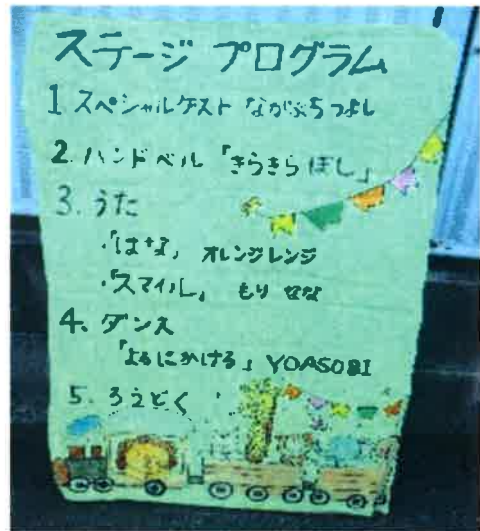 ステージ プログラム
1 スペシャルゲスト ながぶちつよし
2. ハンドベル「きらきらぼし」
3. うた
・「はな」 オレンジレンジ
・「スマイル」 もり せな
4. ダンス
「よるにかける」 YOASOBI
5. ろうどく